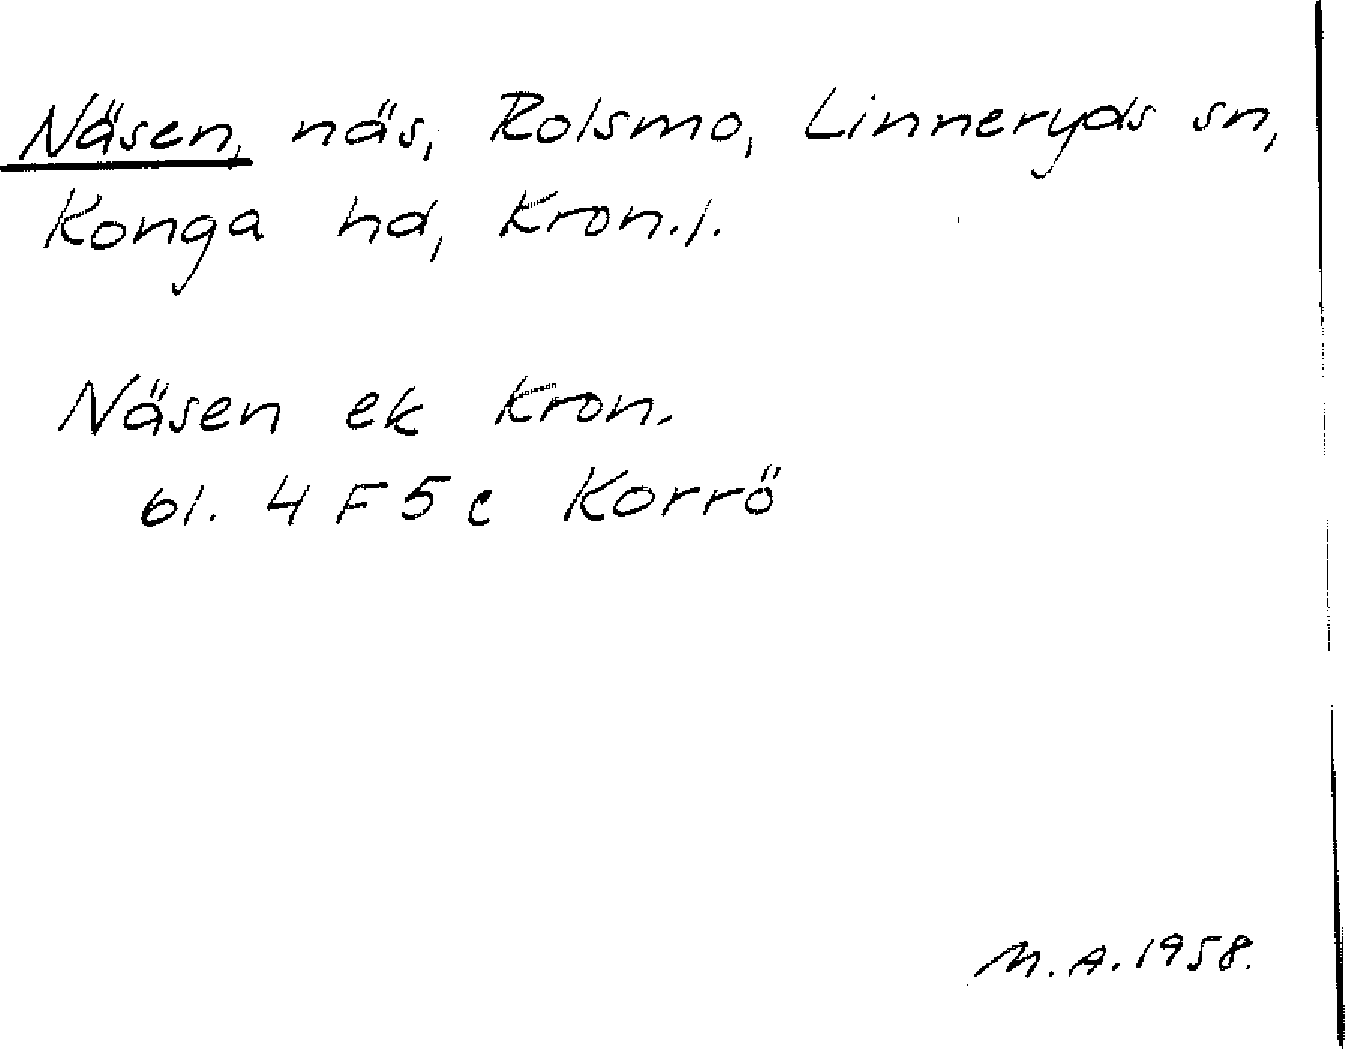 Näsen, näs, Rolsmo, Linneryds sn,
Konga hd, Kron.l.
Näsen ek Kron.
bl. 4 F 5 c Korrö
M.A. 1958.